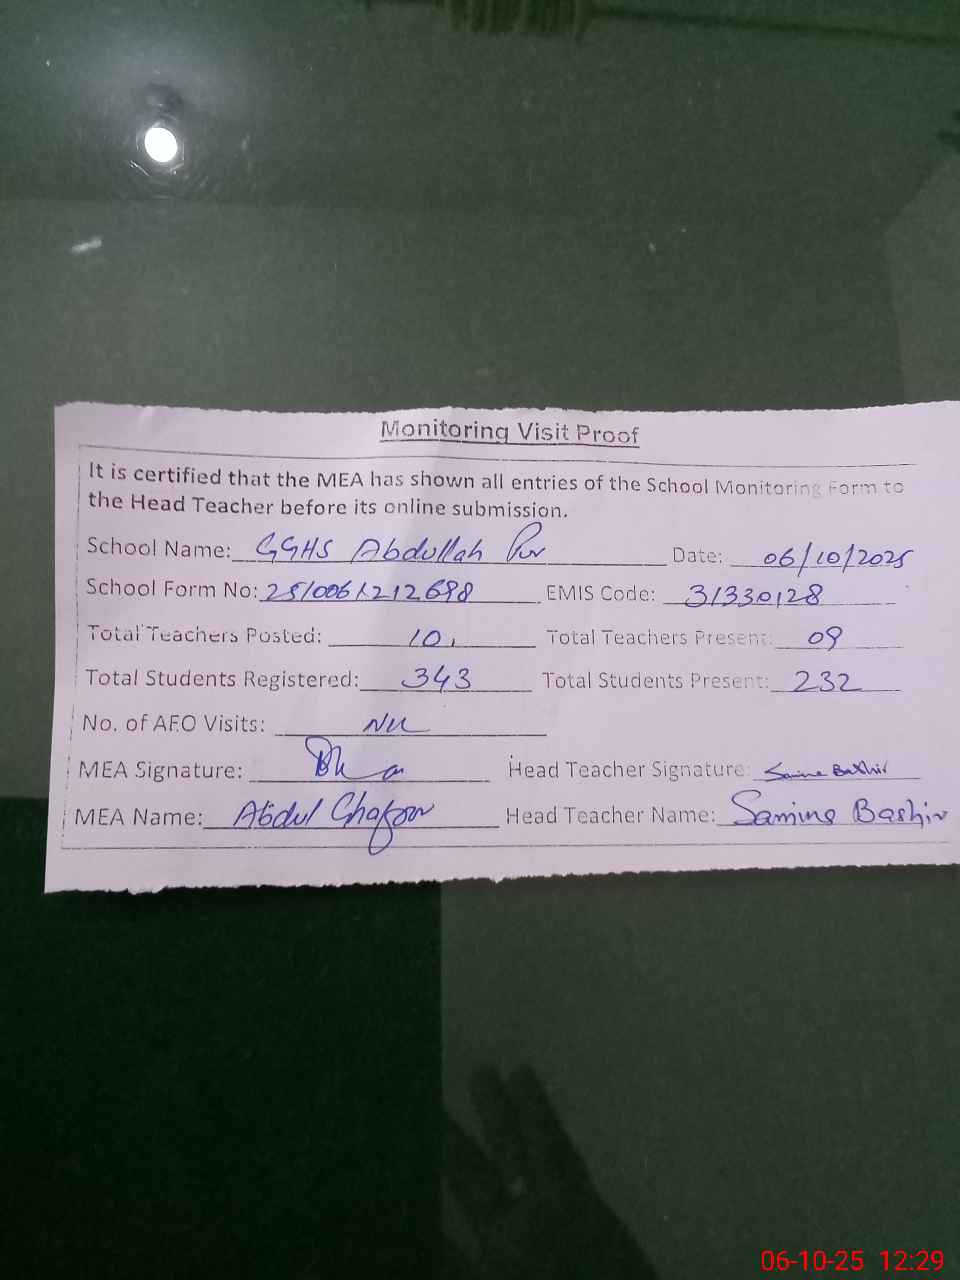 Monitoring Visit Proof
It is certified that the MEA has shown all entries of the School Monitoring Form to
the Head Teacher before its online submission.
School Name: GGHS Abdullah Pur Date: 06/10/2025
School Form No: EMIS Code: 31330128
Total Teachers Posted: 10 Total Teachers Present: 09
Total Students Registered: 343 Total Students Present: 232
No. of AEO Visits: Nil
MEA Signature: Head Teacher Signature: Samina Bashir
MEA Name: Abdul Ghafoor Head Teacher Name: Samina Bashir
06-10-25 12:29